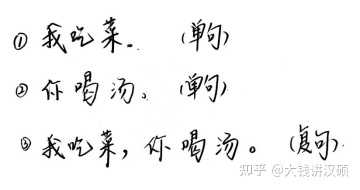 ① 我吃菜。 (单句)
② 你喝汤。 (单句)
③ 我吃菜，你喝汤。 (复句)
知乎 @大钱讲汉硕